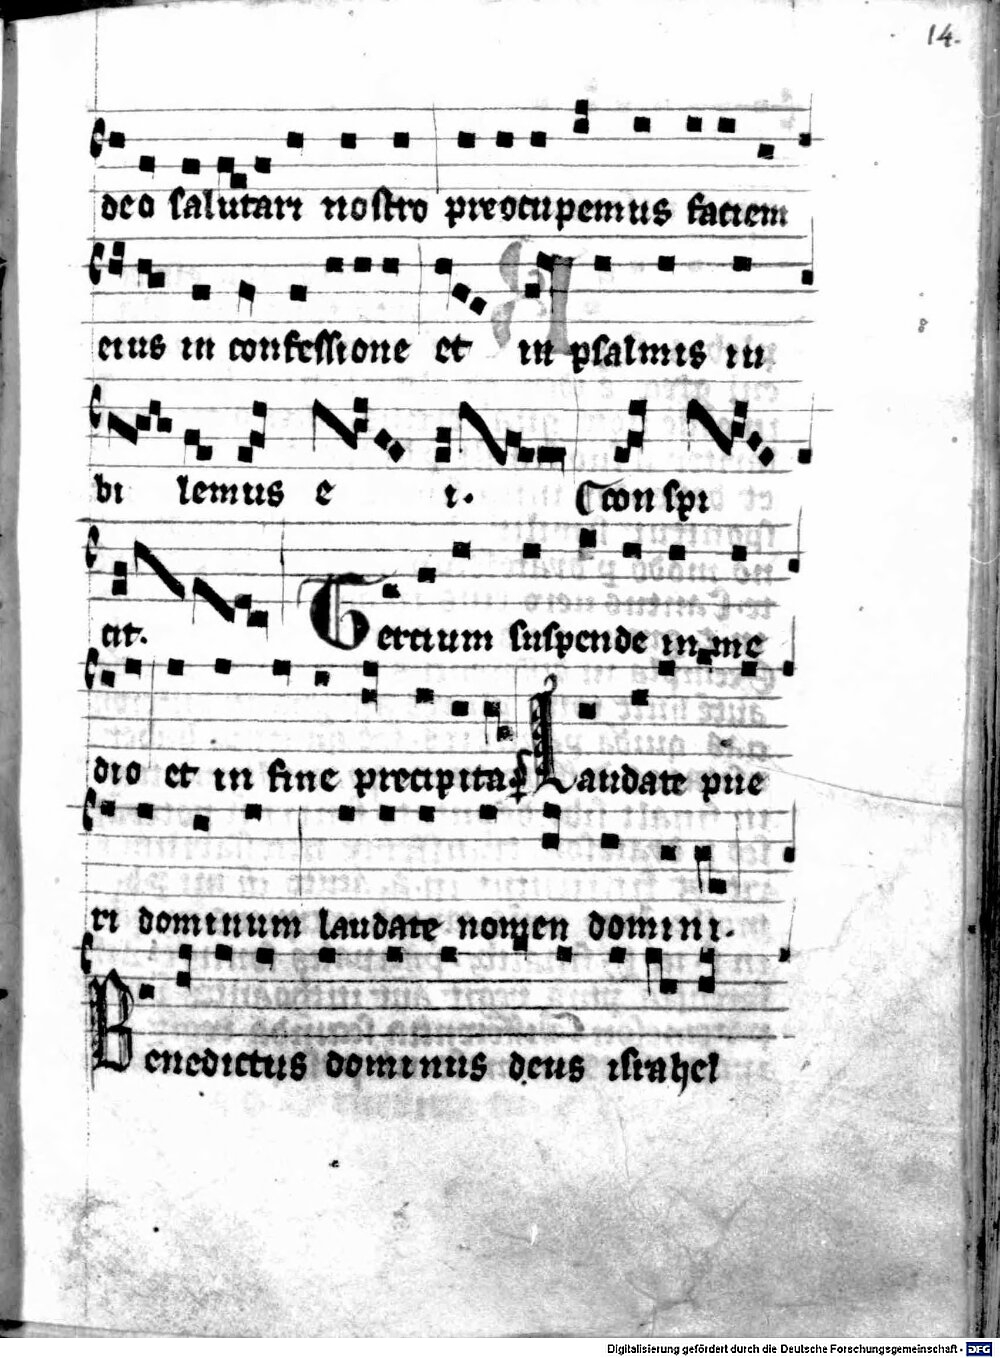 14.
deo salutari nostro preocupemus faciem
eius in confessione et in psalmis iu
bi lemus e i. Conspi
cit. Tercium suspende in me
dio et in fine precipita Laudate pue
ri dominum laudate nomen domini.
Benedictus dominus deus israhel
Digitalisierung gefördert durch die Deutsche Forschungsgemeinschaft - DFG